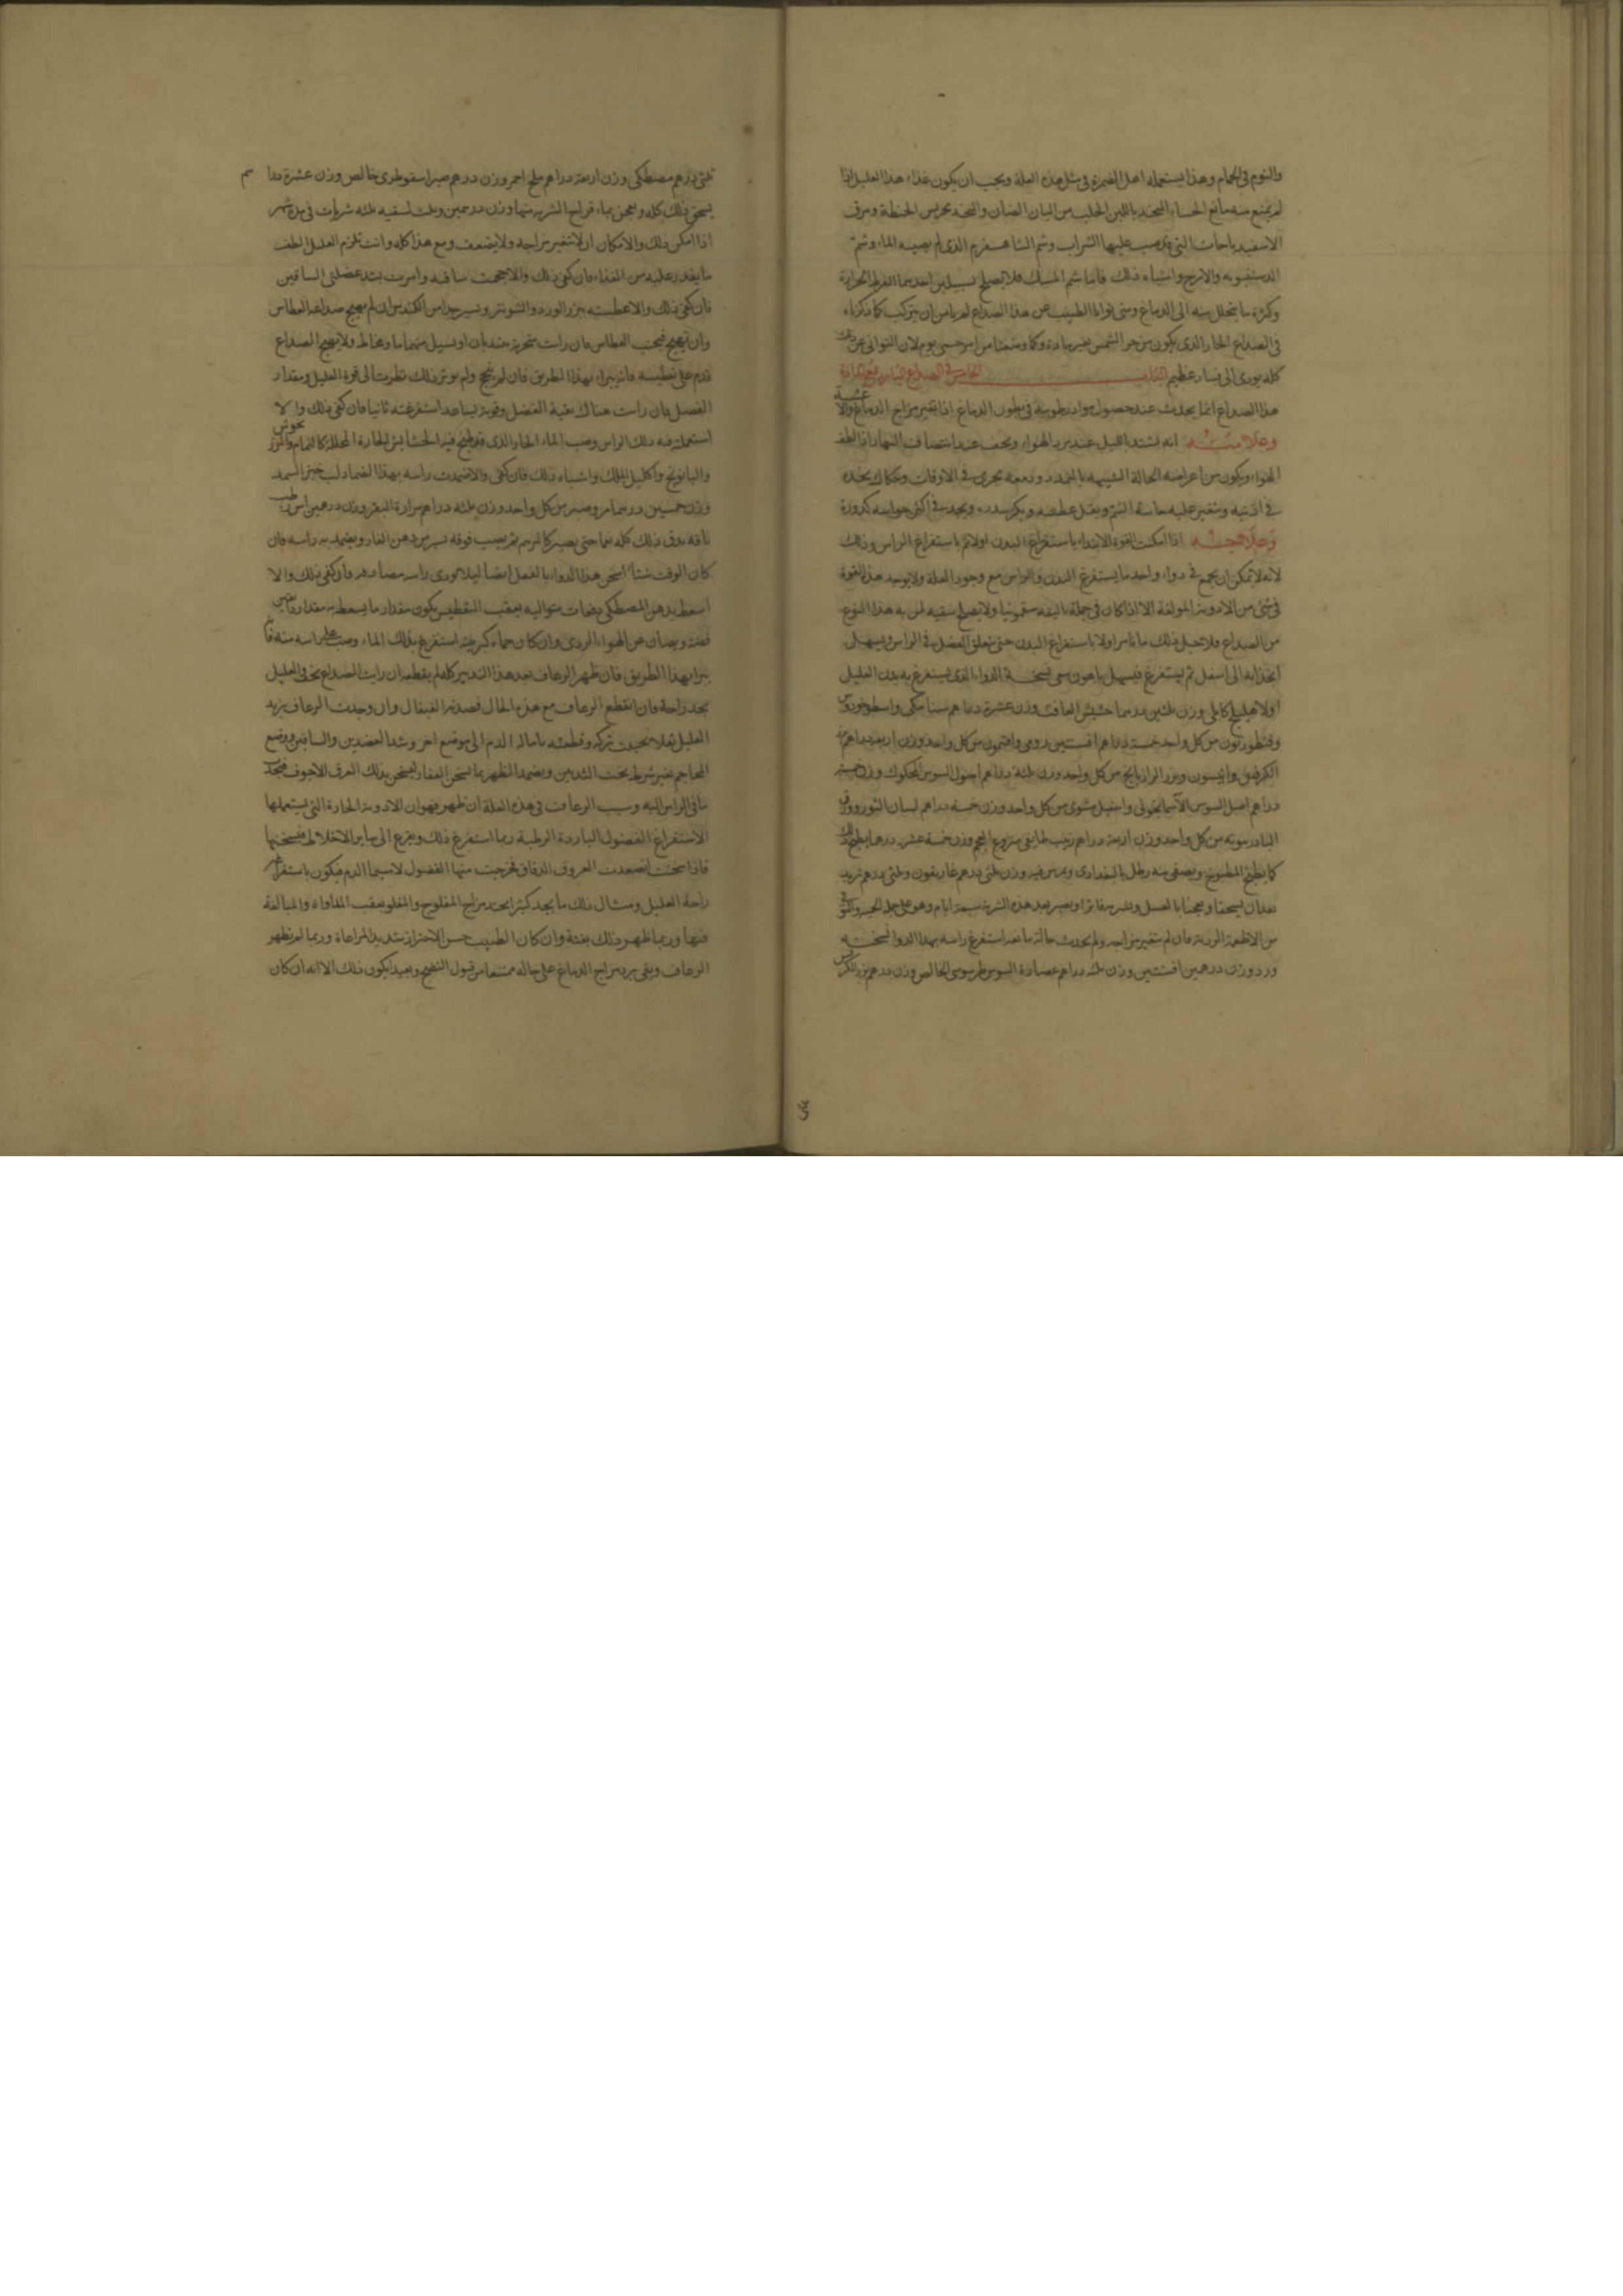 والنوم في الحمام وهذا يستعمله اهل البصرة في مثل هذه العلة ويجب ان يكون غذاء هذا العليل اذا
لم يمنع منه مانع الحساء المتخذ باللبن الحليب من البان الضان والمتخذ بحريس الحنطة ومرق
الاسفيدباجات التي قد صب عليها الشراب وشم الشاهسفرم الذي لم يصبه الماء وشم
الدستنبويه والاترج واشباه ذلك فاما شم المسك فلا يصلح لسببين احدهما لفرط الحرارة
وكثرة ما يتحلل منه الى الدماغ ومتى توانا الطبيب عن هذا الصداع لم يامن ان يتركب كما ذكرناه
في الصداع الحار الذي يكون من حر الشمس بغير مادة وكما وصفنا من امر حمى يوم لان التواني عن ذلك
كله يودى الى فساد عظيم الباب الخامس في الصداع البارد مع المادة
هذا الصداع انما يحدث عند حصول مواد رطوبية في بطون الدماغ اذا تغير مزاج الدماغ والاغشية
وعلامته انه يشتد بالليل عند برد الهواء ويخف عند انتصاف النهار اذا لطف
الهواء ويكون من اعراضه الحالة الشبيهة بالتمدد ودمعة تجرى في الاوقات وحكاك يجده
في اذنيه وتتغير عليه حاسة الشم ويقل عطشه ويكثر سدره ويجد في اكثر حواسه كدورة
وعلاجه اذا امكنت القوة الابتداء باستفراغ البدن اولا ثم باستفراغ الراس وذلك
لانه لا يمكن ان يجمع في دواء واحد ما يستفرغ البدن والراس مع وجود العلة ولا يوجد هذه القوة
في شئ من الادوية المولفة الا اذا كان في جملة تاليفه سقمونيا ولا يصلح سقيه لمن به هذا النوع
من الصداع فلاجل ذلك ما نامر اولا باستفراغ البدن حتى يعلق الفضل في الراس ويسهل
انجذابه الى اسفل ثم يستفرغ فيسهل باهون سعى نسخة الدواء الذي يستفرغ به بدن العليل
اولا هليلج كابلى وزن ثلثين درهما حشيش الغافت وزن عشرة دراهم سنا مكى واسطوخودوس
وقنطوريون من كل واحد خمسة دراهم افسنتين رومى وافتيمون من كل واحد وزن اربعة دراهم بزر
الكرفس وانيسون وبزر الرازيانج من كل واحد وزن ثلثة دراهم اصول السوس المحكوك وزن خمسة
دراهم اصل السوس الاسمانجونى واشقيل مشوى من كل واحد وزن خمسة دراهم لسان الثور وورق
البادرنبويه من كل واحد وزن اربعة دراهم زبيب طايفى منزوع العجم وزن خمسة عشر درهما يطبخ ذلك
كما يطبخ المطبوخ ويصفى منه رطل بالبغدادى ويمرس فيه وزن ثلثى درهم غاريقون وثلثى درهم تربد
بعد ان يسحقا ويعجنا بالعسل ويشربه فاترا ويصبر بعد هذه الشربة سبعة ايام وهو على جملة الحمية والتوقى
من الاطعمة الردية فان لم يتغير مزاجه ولم يحدث حالة مانعة استفرغ راسه بهذا الدوا نسخته
ورد وزن درهمين افسنتين وزن ثلثة دراهم عصارة السوس طرسوسى الخالص وزن درهم بزر الكرفس
ثلثى درهم مصطكى وزن اربعة دراهم ملح احمر وزن درهم صبر اسقوطرى خالص وزن عشرة درا هم
يسحق ذلك كله ويعجن بماء قراح الشربة منها وزن درهمين وثلث تسقيه ثلثة شربات في مدة شهر
اذا امكن ذلك والامكان ان لا تتغير مزاجه ولا يضعف ومع هذا كله وانت تلزم العليل الطف
ما يقدر عليه من الغذاء فان كفى ذلك والا حجمت ساقيه وامرت بشد عضلتى الساقين
فان كفى ذلك والا عطسته ببزر الورد والشونيز ويسير جدا من الكندس ان لم يهيج صداعه العطاس
وان يهيج فيجب العطاس فان رايت منخريه يبتديان او يسيل منهما ما ومخاط ولا يهيج الصداع
فدم على تعطيسه فانه يبراء بهذا الطريق فان لم ينجح ولم يوثر ذلك نظرت الى قوة العليل ومقدار
الفضل فان رايت هناك بقية الفضل وقوة تساعد استفرغته ثانيا فان كفى ذلك والا
استعملت فيه دلك الراس وصب الماء الحار الذي قد طبخ فيه الحشايش الحارة المحللة كالنمام والمرزنجوش
والبابونج واكليل الملك واشباه ذلك فان كفى والا ضمدت راسه بهذا الضماد لب خبز السميد
وزن خمسين درهما مر وصبر من كل واحد وزن ثلثة دراهم مرارة البقر وزن درهمين اس رطب
باقة يدق ذلك كله نعما حتى يصير كالمرهم ثم يصب فوقه يسير من دهن الغار ويضمد به راسه فان
كان الوقت شتاء اسخن هذا الدواء بالفعل ايضا ليلا يوذى راسه مصادفه فان كفى ذلك والا
اسعط بدهن المصطكى دفعات متوالية بعقب التعطيس يكون مقدار ما يسعط به مقدار دانقين
فضة ويصان عن الهواء الردى وان كان حماء كبريتية استفرغ بذلك الماء وصب على راسه منه فانه
يبرا بهذا الطريق فان ظهر الرعاف بعد هذا التدبير كله لم يقطعه ان رايت الصداع يخف والعليل
يجد راحة فان انقطع الرعاف مع هذه الحال فصدته القيفال وان وجدت الرعاف يزيد
العليل ثقلا تحيلت تركه وقطعته بامالة الدم الى موضع اخر وشد العضدين والساقين ووضع
المحاجم بغير شرط تحت الثديين ويضمد الظهر بما يسخن الفقار ليسخن بذلك العرق الاجوف فيجذب
ما في الراس اليه وسبب الرعاف في هذه العلة ان ظهر فهو ان الادوية الحارة التي يستعملها
الاستفراغ الفضول الباردة الرطبة ربما استفرغ ذلك ويفزع الى ساير الاخلاط فيسخنها
فاذا سخنت انصدعت العروق الدقاق فخرجت منها الفضول لا سيما الدم فيكون باستفراغه
راحة العليل ومثال ذلك ما يجد كثيرا يحتد مزاج المفلوج والملقو بعقب المداواة والمبالغة
فيها وربما ظهر ذلك بغتة وان كان الطبيب حسن الاحتراز شديد المراعاة وربما لم يظهر
الرعاف ويبقى برد مزاج الدماغ على حاله ممتنعا من قبول النضج وبعيد ايكون ذلك الا انه ان كان